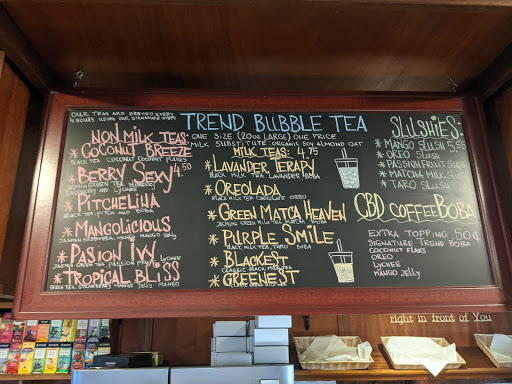 OUR TEAS ARE BREWED EVERY
4 HOURS USING OUR SIGNATURE
TREND BUBBLE TEA
ONE SIZE (20oz LARGE) ONE PRICE
MILK SUBSTITUTE ORGANIC SOY ALMOND OAT
NON MILK TEAS:
4.50
* COCONUT BREEZE
BLACK TEA COCONUT COCONUT FLAKES
* BERRY SEXY
JASMIN GREEN TEA, BLUEBERRY
AND LYCHEE
* PITCHELINA
BLACK TEA, PITCH AND BOBA
* MANGOLICIOUS
MANGO MANGO JELLY
* PASION IVY
JASMIN GREEN TEA, PASSION FRUIT LYCHEE
* TROPICAL BLISS
GREEN TEA, STRAWBERRY MANGO JELLY MANGO
MILK TEAS: 4.75
* LAVANDER TERAPY
BLACK MILK TEA LAVANDER BOBA
* OREOLADA
BLACK MILK TEA CHOCOLATE OREO
* GREEN MATCA HEAVEN
JASMINE GREEN MILK TEA MATCHA BOBA
* PURPLE SMILE
BLACK MILK TEA, TARO BOBA
* BLACKEST
CLASSIC BLACK MILK TEA
* GREENEST
CLASSIC
SLUSHIES:
* MANGO SLUSH 5.55
* OREO SLUSH
* PASSION FRUIT SLUSH
* MATCHA MILK SLUSH
* TARO SLUSH
CBD COFFEE BOBA
EXTRA TOPPING 50¢
SIGNATURE TREND BOBA
COCONUT FLAKS
OREO
LYCHEE
MANGO JELLY
right in front of You